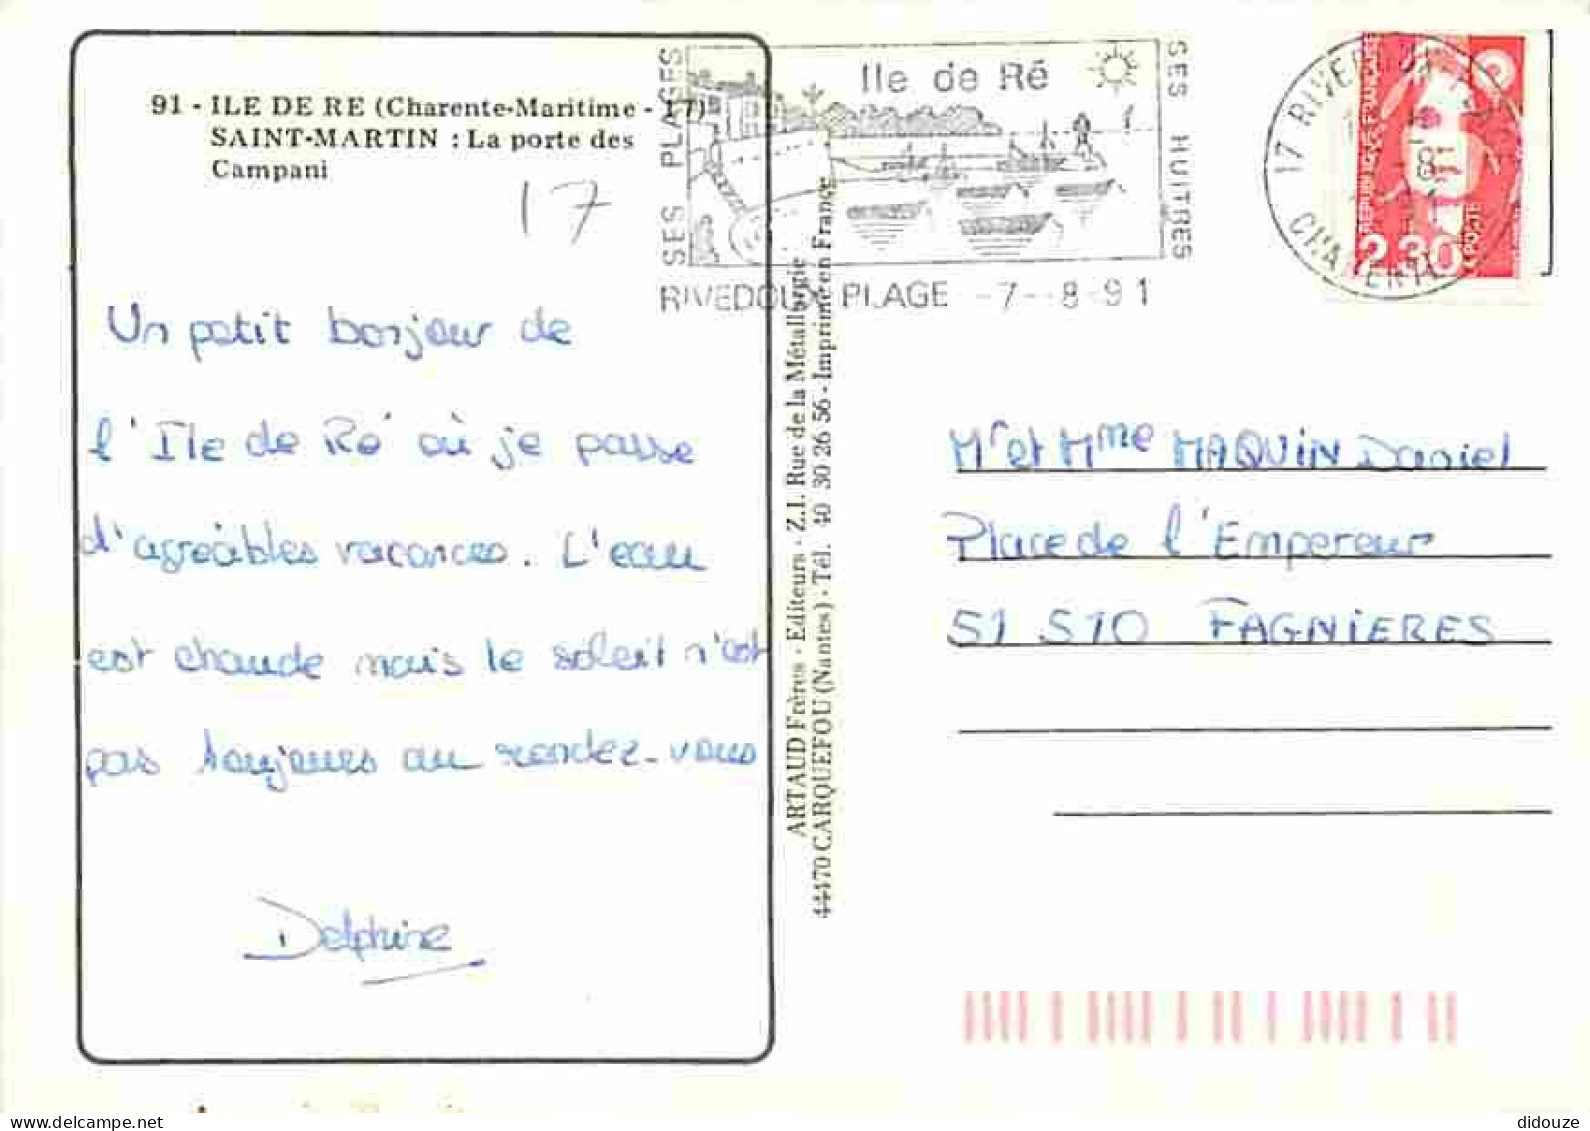 91 - ILE DE RE (Charente-Maritime - 17)
SAINT-MARTIN : La porte des
Campani
17
Un petit bonjour de
l'Ile de Ré où je passe
d'agréables vacances. L'eau
est chaude mais le soleil n'est
pas toujours au rendez-vous
Delphine
ARTAUD Frères - Editeurs - Z.I. Rue de la Métallurgie
44470 CARQUEFOU (Nantes) - Tél. 40 30 26 56 - Imprimé en France
SES PLAGES
Ile de Ré
SES HUITRES
RIVEDOUX PLAGE -7--8-91
17 RIVEDOUX
CHARENTE
REPUBLIQUE FRANCAISE
2,30
LA POSTE
Mr et Mme MAQUIN Daniel
Place de l'Empereur
51 510 FAGNIERES
didouze